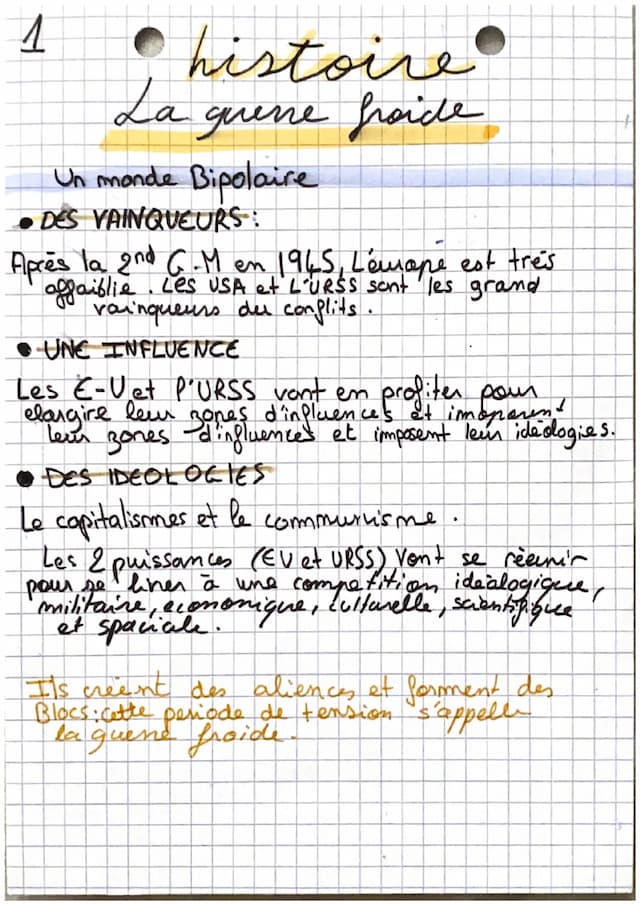 1
histoire
La guerre froide
Un monde Bipolaire
• DES VAINQUEURS :
Après la 2nd G.M en 1945, L'europe est très
affaiblie. Les USA et L'URSS sont les grand
vainqueurs du conflits.
• UNE INFLUENCE
Les E-U et l'URSS vont en profiter pour
elargire leur zones d'influences et imposent
leur zones d'influences et imposent leur idéologies.
• DES IDEOLOGIES
Le capitalismes et le communisme.
Les 2 puissances (EU et URSS) Vont se réeunir
pour se livrer à une competition idéalogique,
militaire, economique, culturelle, scientifique
et spaciale.
Ils créent des aliences et forment des
Blocs : cette periode de tension s'appelle
la guerre froide.